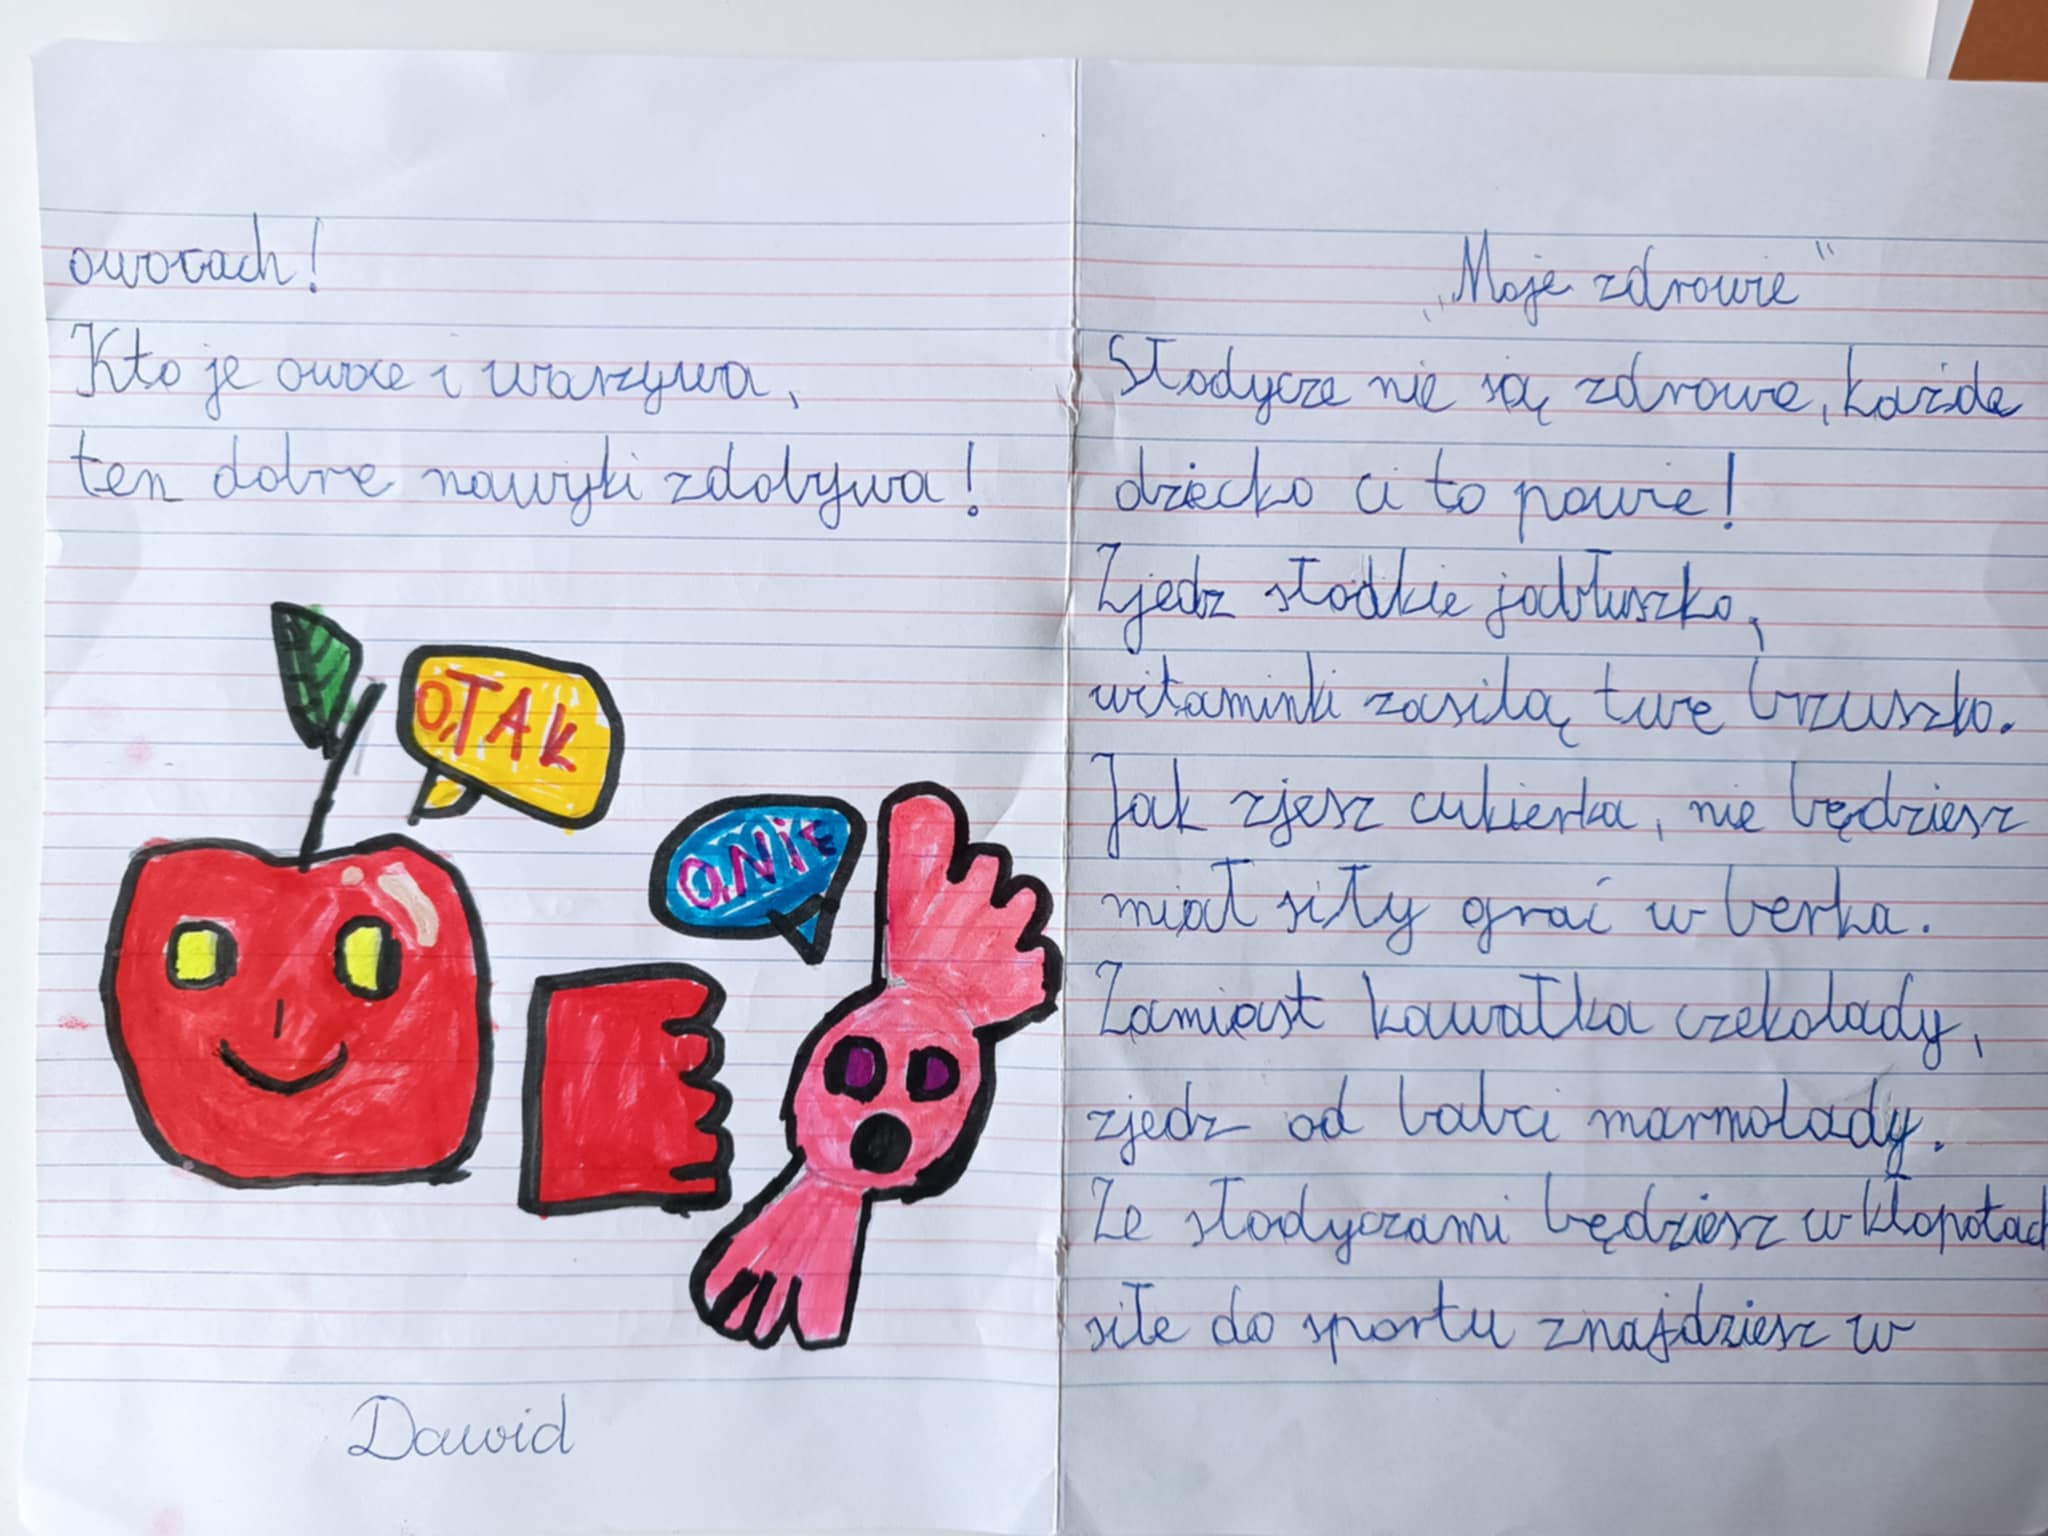 „Moje zdrowie"
Słodycze nie są zdrowe, każde
dziecko ci to powie!
Zjedz słodkie jabłuszko,
witaminki zasilą twe brzuszko.
Jak zjesz cukierka, nie będziesz
miał siły grać w berka.
Zamiast kawałka czekolady,
zjedz od babci marmolady.
Ze słodyczami będziesz w kłopotach
siłe do sportu znajdziesz w
owocach!
Kto je owoce i warzywa,
ten dobre nawyki zdobywa!
O,TAK
O,NiE
Dawid